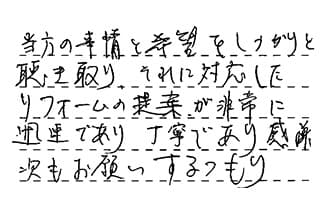 当方の事情と希望をしっかりと
聴き取り、それに対応した
リフォームの提案が非常に
迅速であり 丁寧であり 感謝
次もお願いするつもり